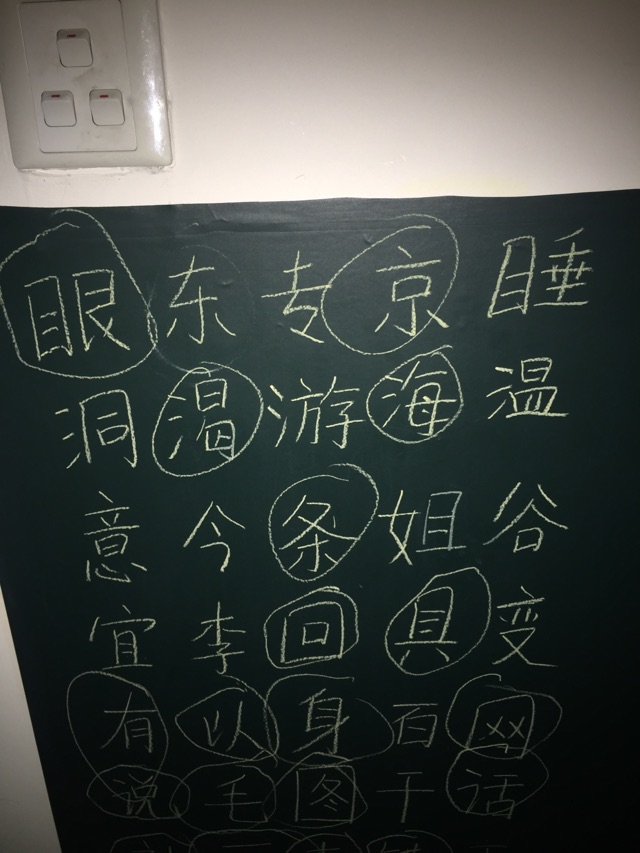 眼东专京睡
洞渴游海温
意今条姐谷
宜李回具变
有以身百网
说毛图干话